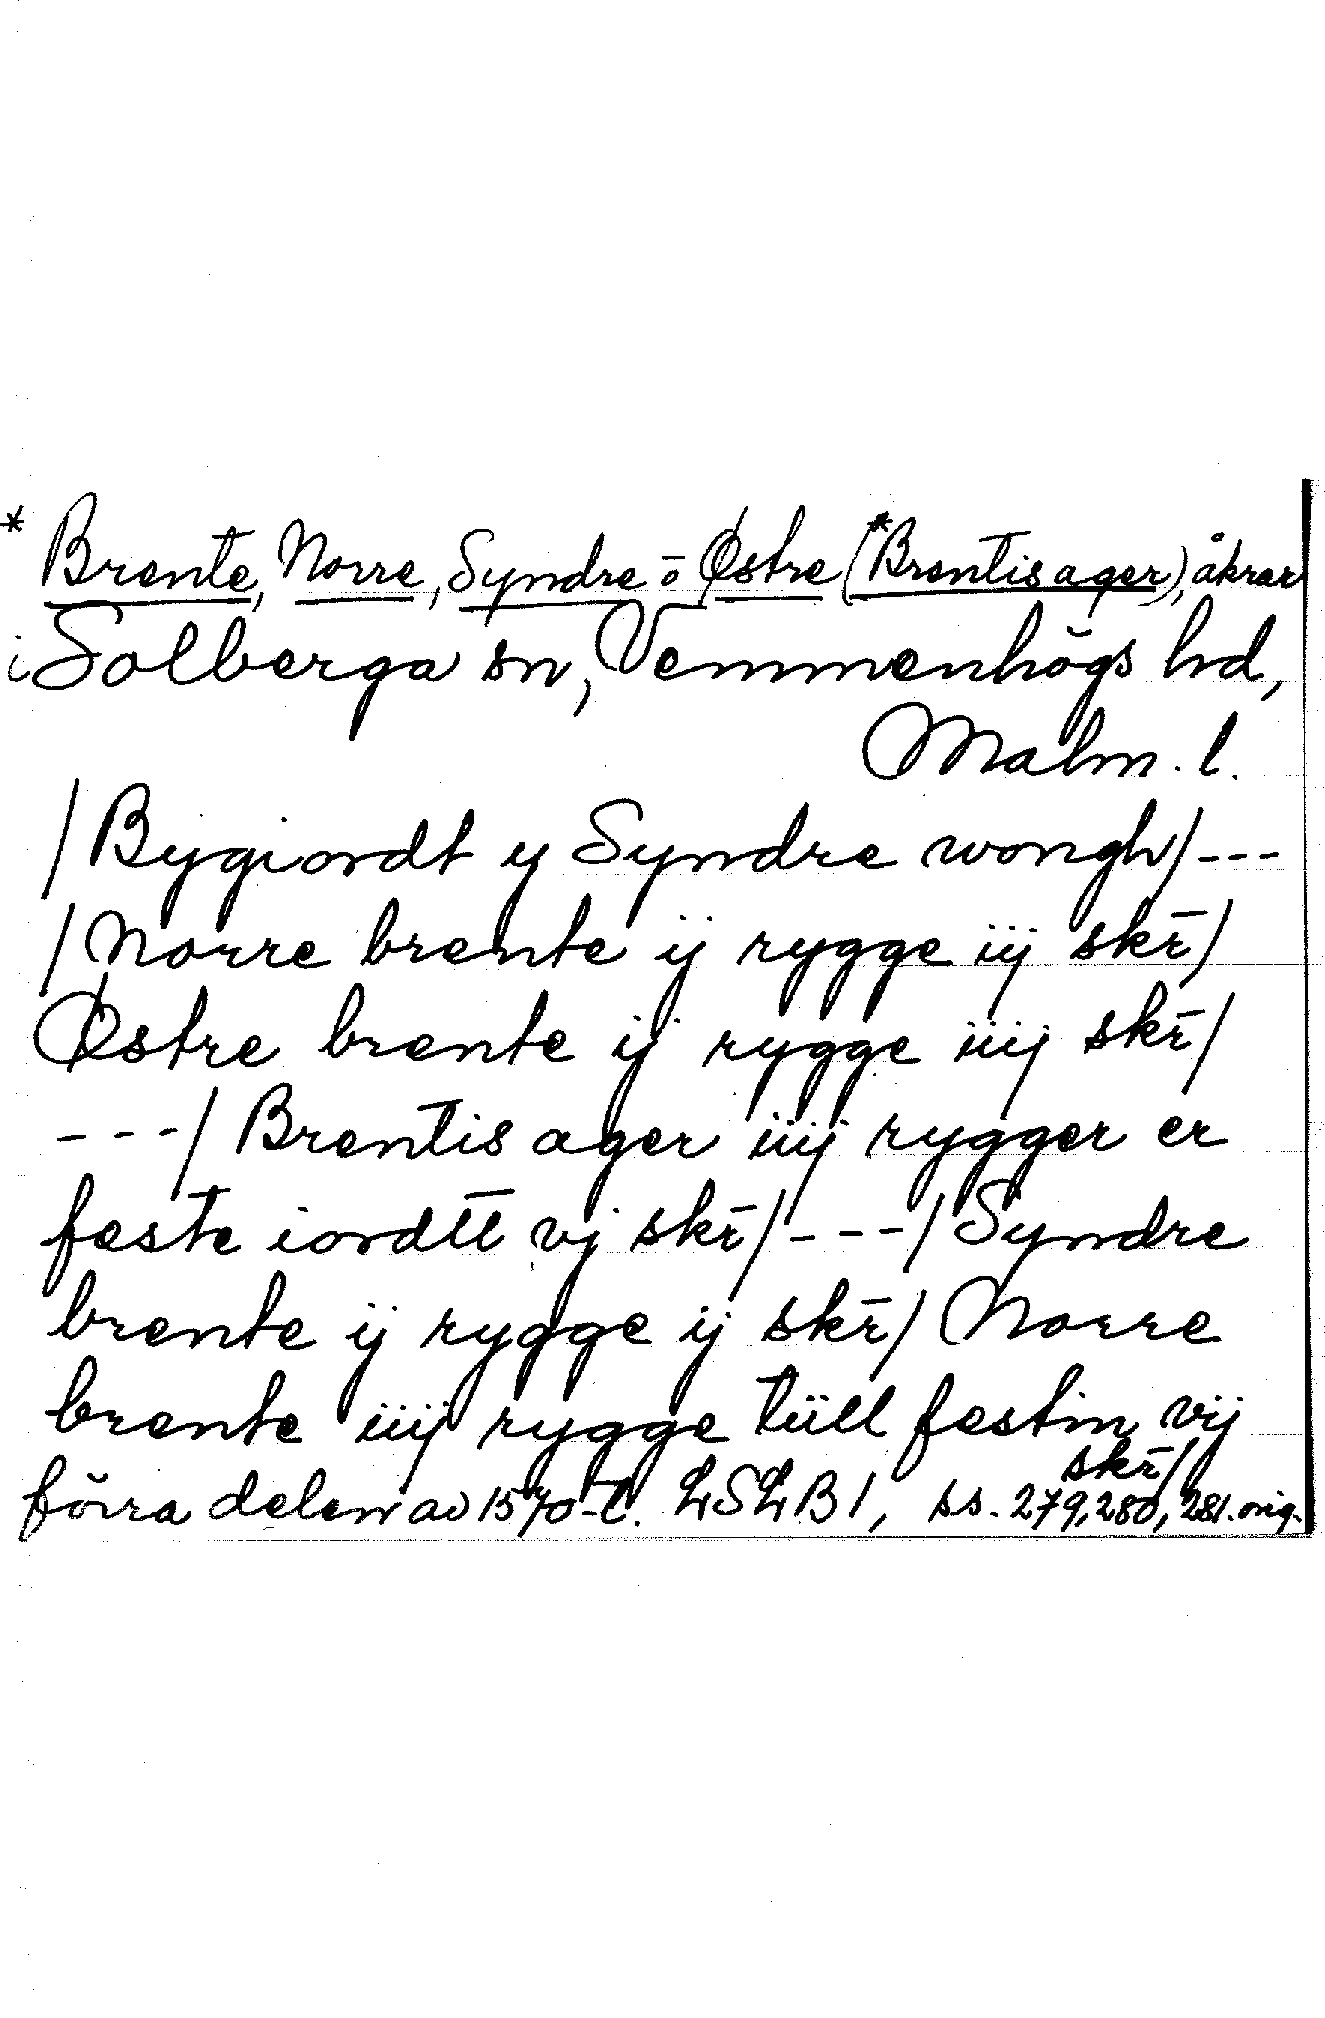 * Brente, Norre, Syndre o Østre (*Brentis ager), åkrar
i Solberga sn, Vemmenhögs hd,
Malm. l.
/ Bygiordt y Syndre wongh/ ---
/ Norre brente ij rygge iij skr̄/
Østre brente ij rygge iiij skr̄/
---/ Brentis ager iiij rygger er
feste iordtt vj skr̄/ ---/ Syndre
brente ij rygge ij skr̄/ Norre
brente iiij rygge tiill festin vij
skr̄/
förra delen av 1570-t. LSLB 1, ss. 279, 280, 281. orig.